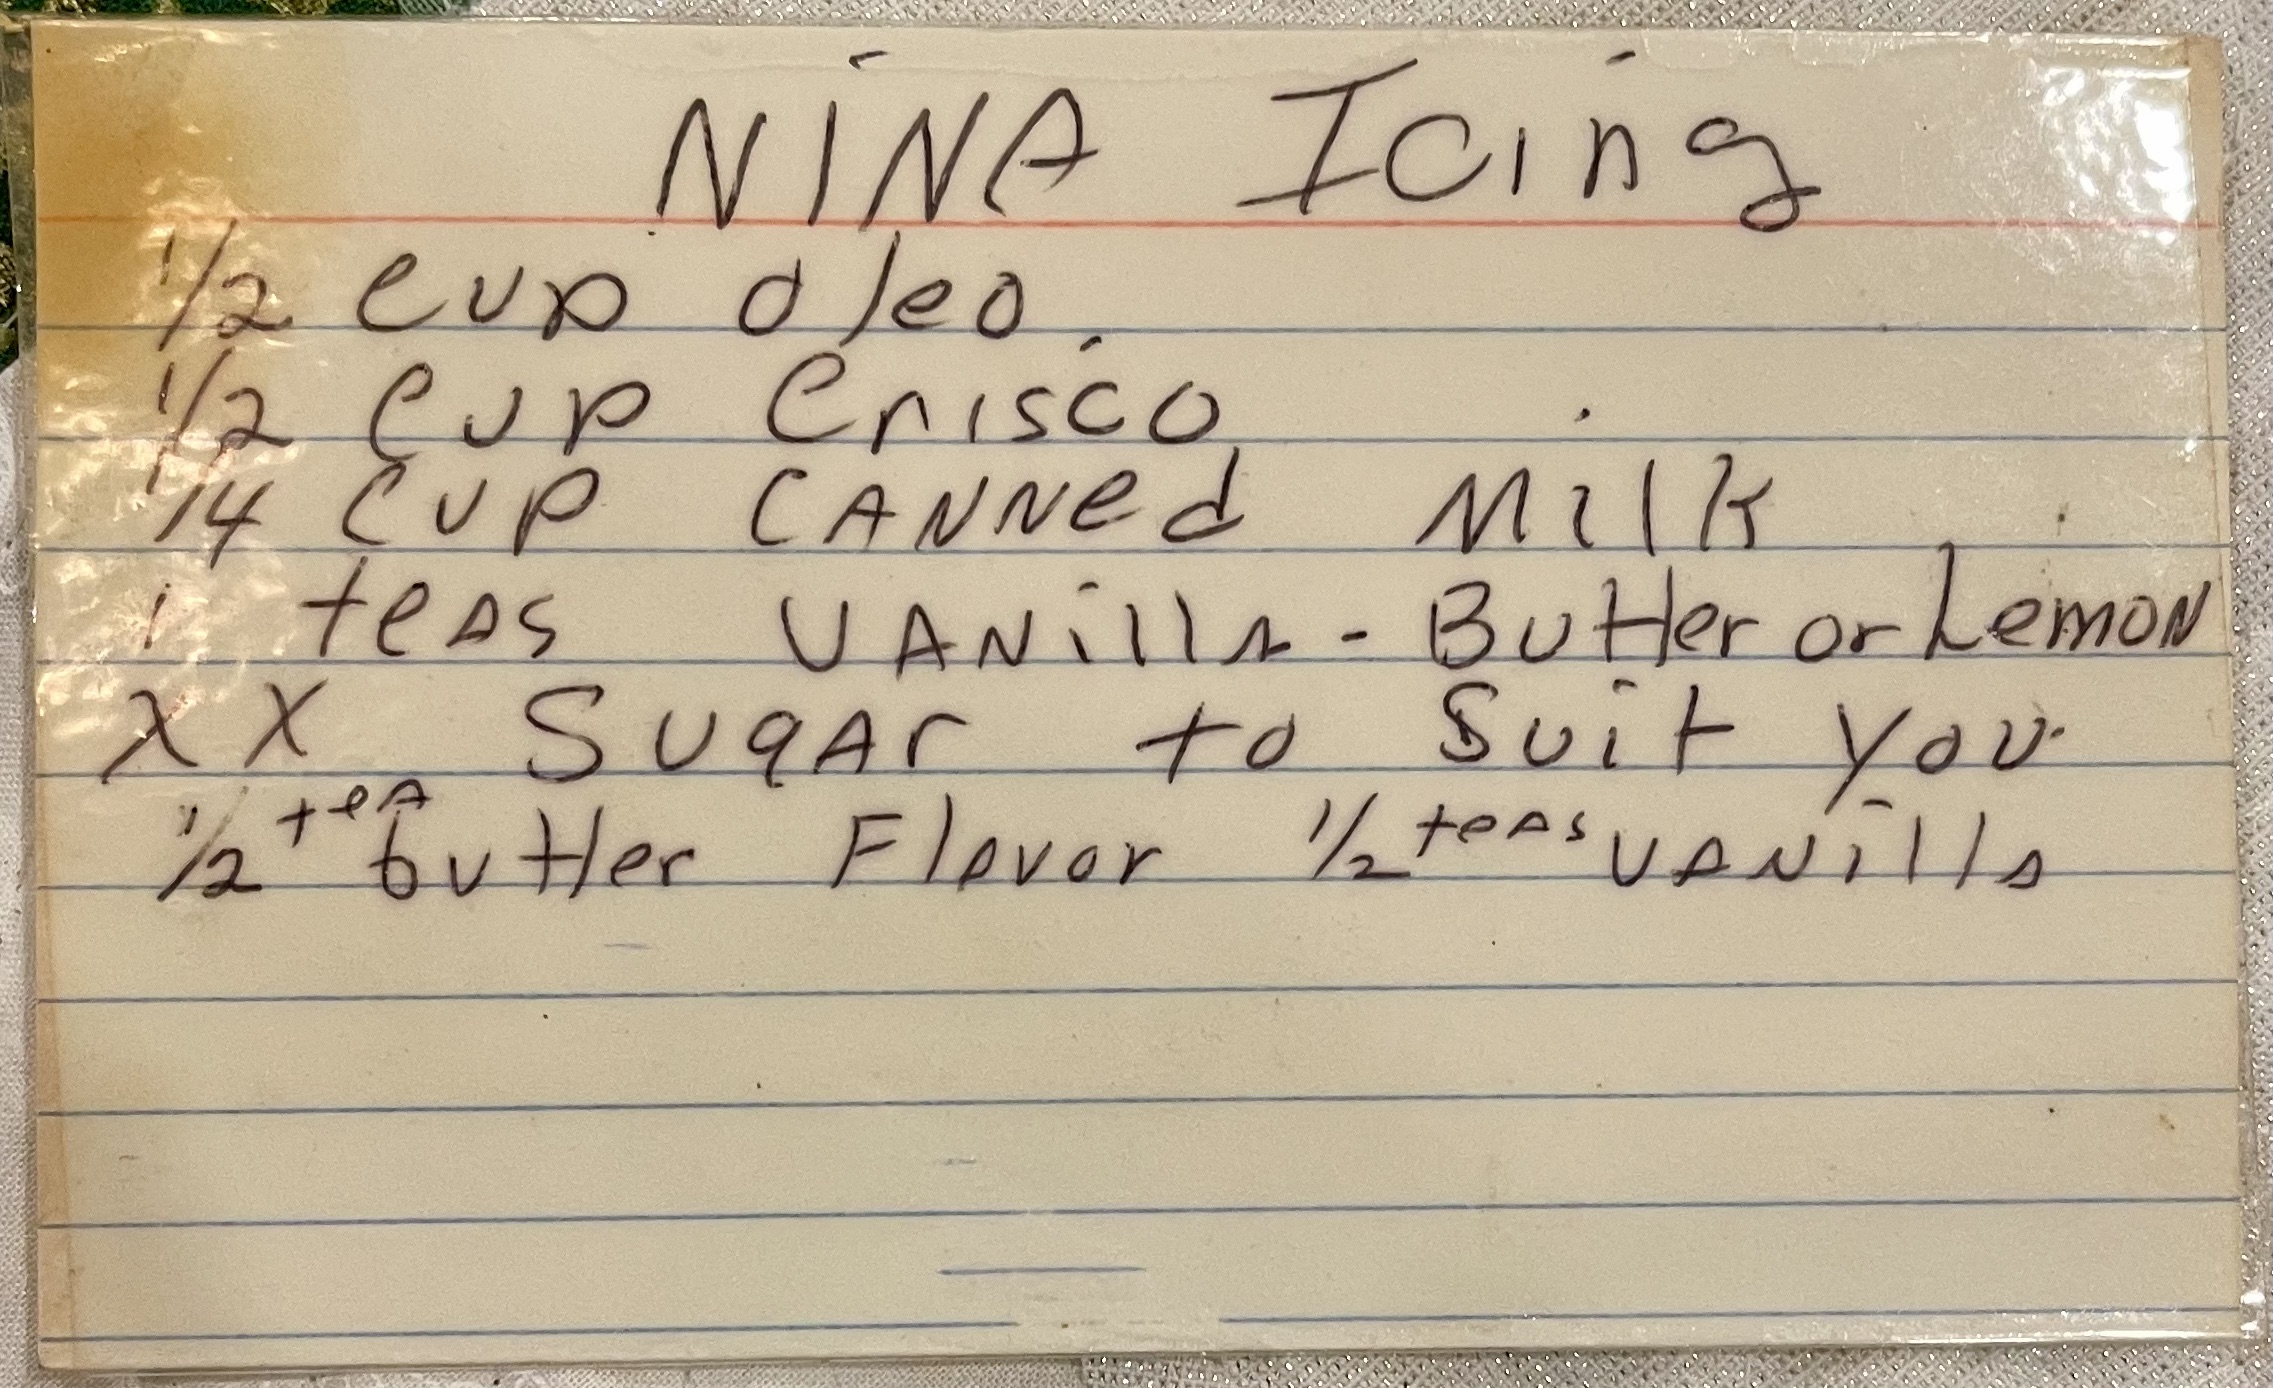 NiNA Icing
1/2 cup oleo
1/2 cup Crisco
1/4 cup CANNed Milk
1 teas VANilla - Butter or Lemon
XX Sugar to Suit you
1/2 tea butter Flavor 1/2 teas VANilla